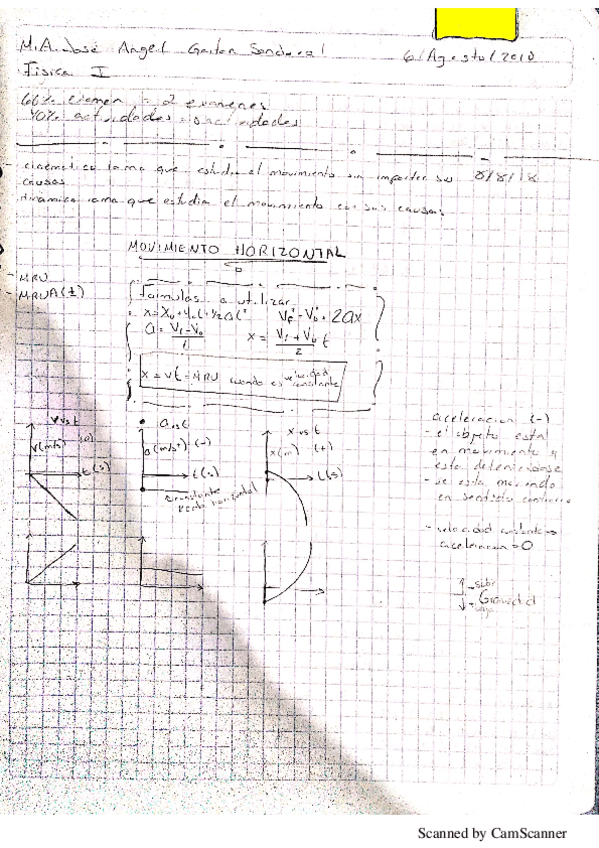 M.A. José Angel Gaitan Sandoval 6/Agosto/2018
Física I
60% examen = 2 examenes
40% actividades
cinematica rama que estudia el movimiento sin importar sus causas 8/8/18
dinamica rama que estudia el movimiento con sus causas
MOVIMIENTO HORIZONTAL
- MRU
- MRUA(±)
Formulas a utilizar
x = x₀ + v₀t + ½at²
Vf² - V₀² = 2ax
a = (Vf - V₀)/t
x = (Vf + V₀)/2 t
x = vt = MRU cuando es velocidad constante
V vs t
v(m/s)
t(s)
a vs t
a(m/s²) (-)
t(s)
constante
recta horizontal
x vs t
x(m) (+)
t(s)
aceleracion (-)
- el objeto está
en movimiento y
esta deteniendose
- se esta moviendo
en sentido contrario
- velocidad constante =>
aceleracion = 0
sube
Gravedad
baja
Scanned by CamScanner